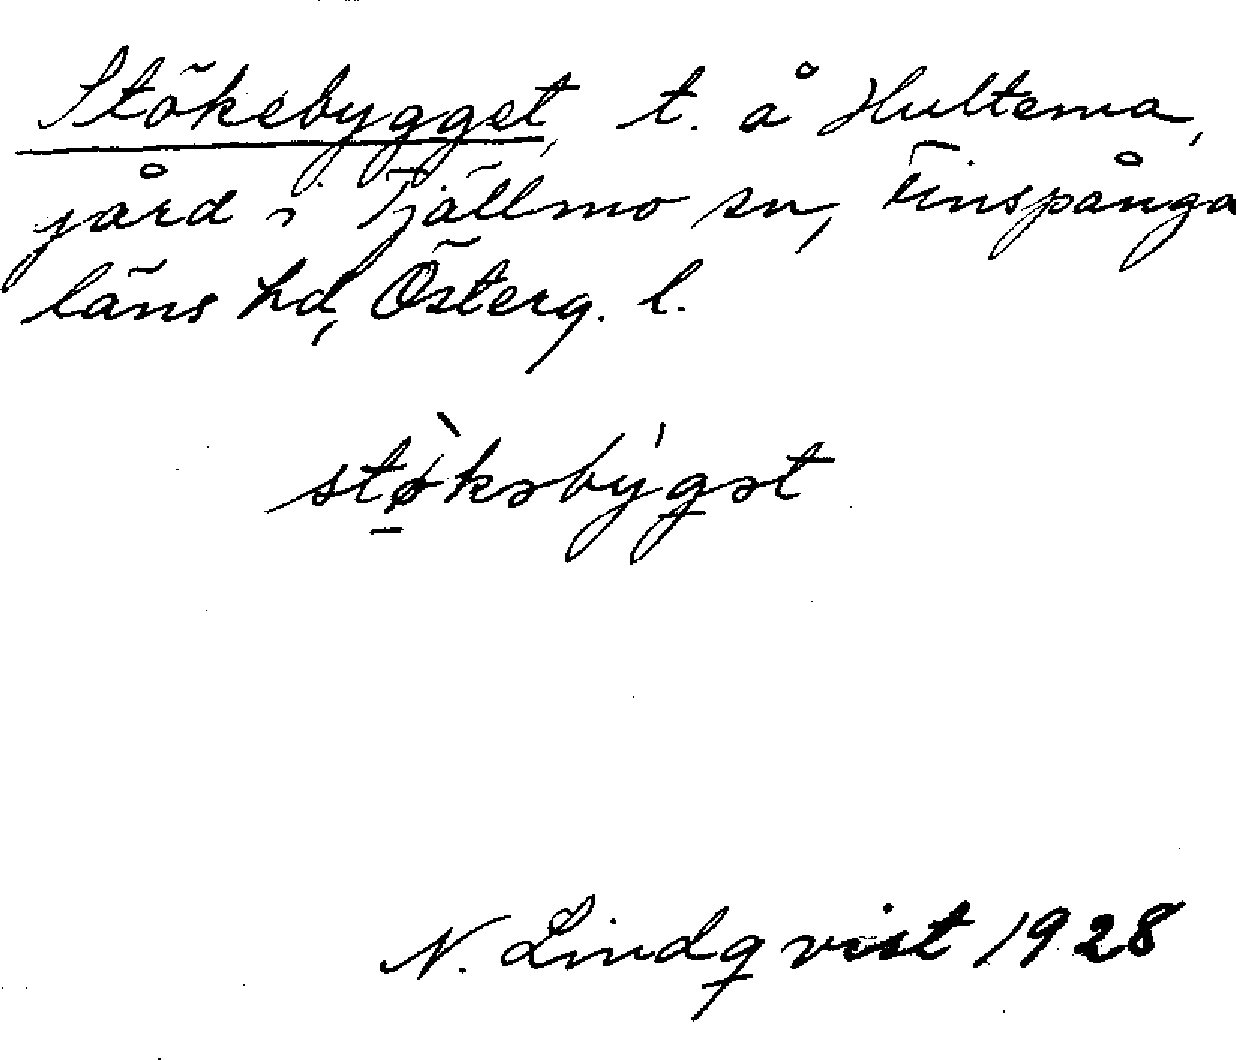 Stökebygget, t. å Hultema,
jård i Tjällmo sn, Finspånga
läns hd, Österg. l.
stø̀kəbýgət
N. Lindqvist 1928